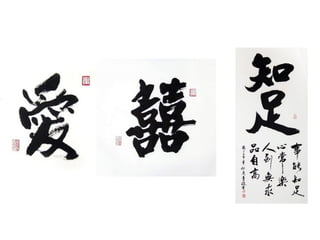 愛
囍
知足
事能知足
心常樂
人到無求
品自高